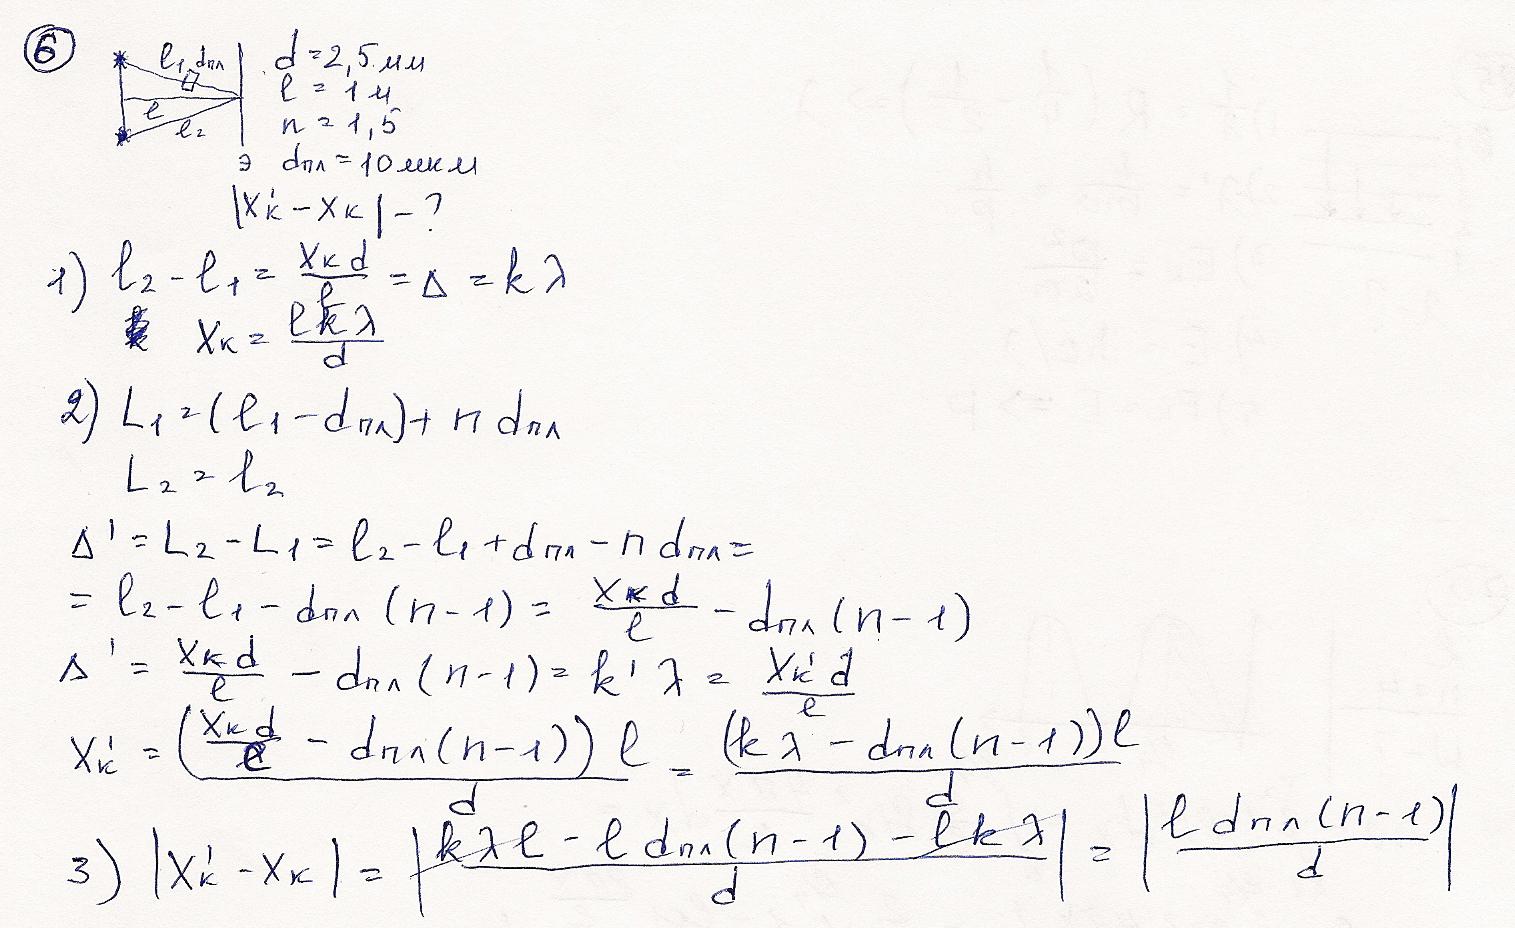 6
l₁ dпл
l
l₂
Э
d = 2,5 мм
l = 1 м
n = 1,5
dпл = 10 мкм
|X'к - Xк| - ?
1) l₂ - l₁ = Xк d / l = Δ = kλ
Xк = lkλ / d
2) L₁ = (l₁ - dпл) + n dпл
L₂ = l₂
Δ' = L₂ - L₁ = l₂ - l₁ + dпл - n dпл =
= l₂ - l₁ - dпл (n - 1) = Xк d / l - dпл (n - 1)
Δ' = Xк d / l - dпл (n - 1) = k'λ = X'к d / l
X'к = (Xк d / l - dпл (n - 1)) l / d = (kλ - dпл (n - 1)) l / d
3) |X'к - Xк| = |kλl - l dпл (n - 1) - lkλ / d| = |l dпл (n - 1) / d|